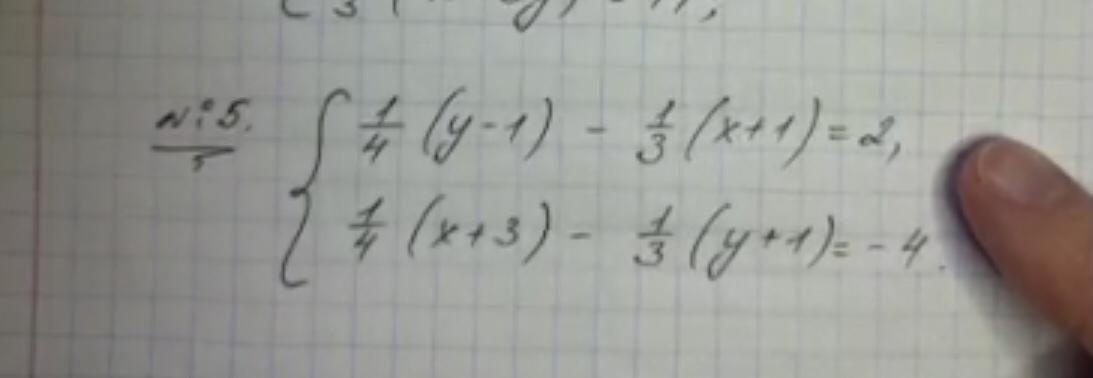 №5. { 1/4 (y-1) - 1/3 (x+1) = 2,
1/4 (x+3) - 1/3 (y+1) = -4.